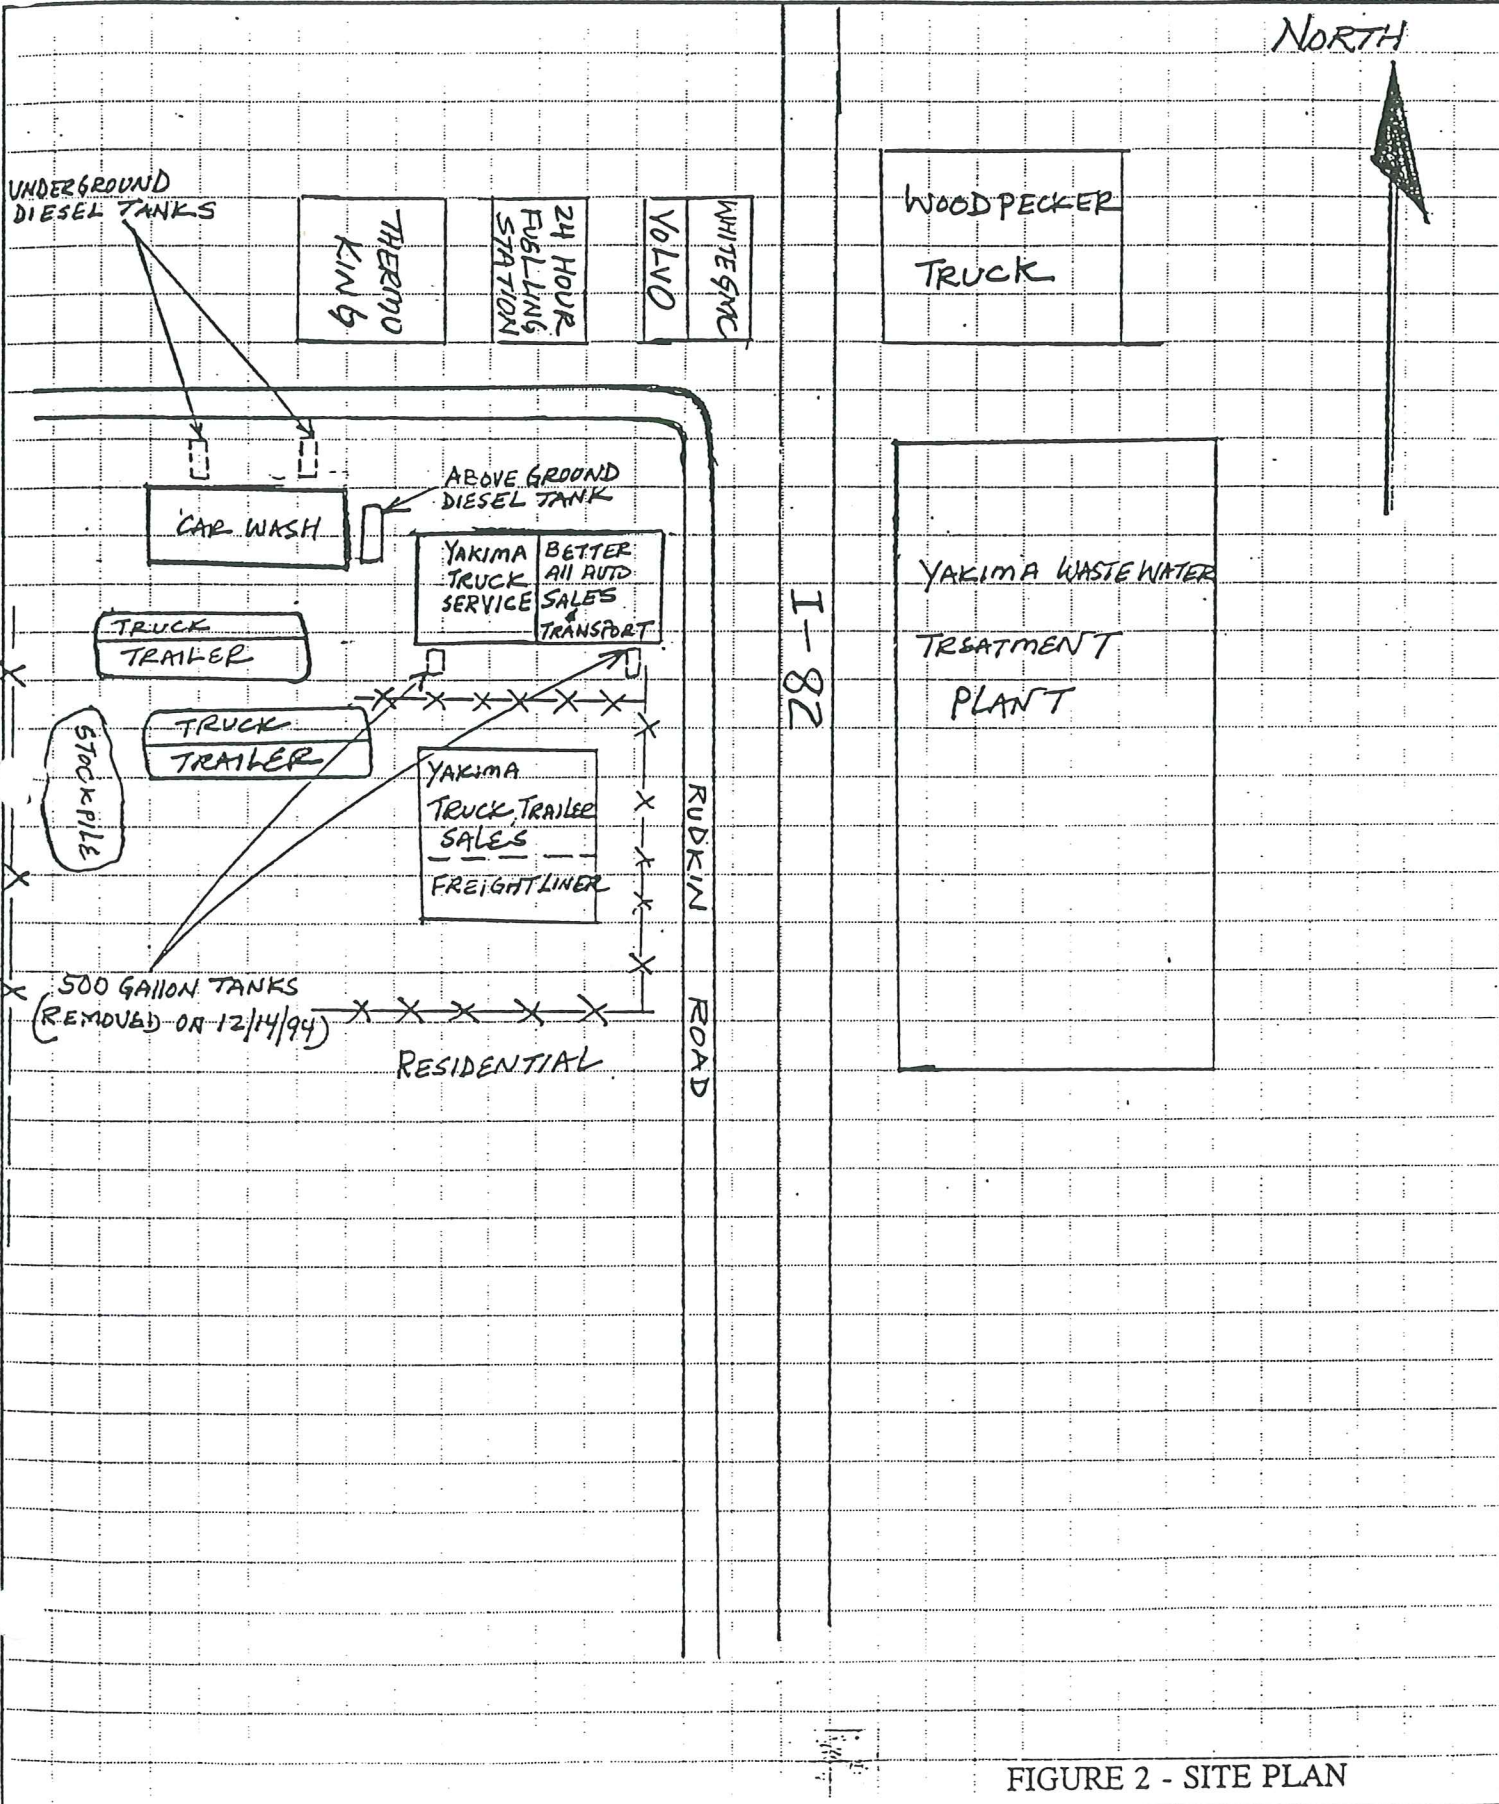 NORTH
UNDERGROUND
DIESEL TANKS
THERMO
KING
24 HOUR
FUELLING
STATION
WHITE GMC
VOLVO
WOODPECKER
TRUCK
ABOVE GROUND
DIESEL TANK
CAR WASH
YAKIMA
TRUCK
SERVICE
BETTER
All AUTO
SALES
&
TRANSPORT
TRUCK
TRAILER
TRUCK
TRAILER
STOCKPILE
YAKIMA
TRUCK, TRAILER
SALES
FREIGHTLINER
I-82
RUDKIN ROAD
YAKIMA WASTEWATER
TREATMENT
PLANT
500 GAllON TANKS
(REMOVED ON 12/14/94)
RESIDENTIAL
FIGURE 2 - SITE PLAN